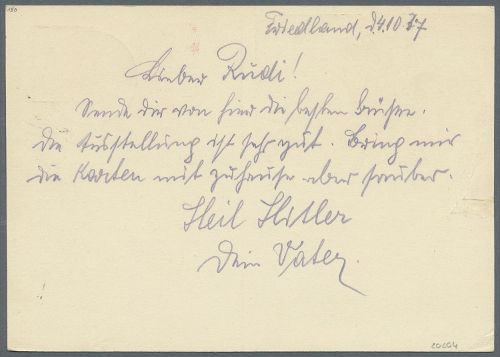 180
Friedland, d. 4.10.37
Lieber Rudi!
Sende dir von hier die besten Grüße.
Die Ausstellung ist sehr gut. Bring mir
die Karten mit zuhause aber sauber.
Heil Hitler
Dein Vater.
20204